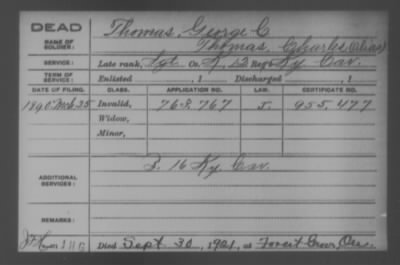 DEAD
NAME OF SOLDIER:
Thomas, George C
Thomas, Charles (Alias)
SERVICE:
Late rank, Sgt. Co. K, 12 Reg't Ky Cav.
TERM OF SERVICE:
Enlisted , 1 Discharged , 1
DATE OF FILING. CLASS. APPLICATION NO. LAW. CERTIFICATE NO.
1890. Mch. 25 Invalid, 768.767 J. 955.477
Widow,
Minor,
ADDITIONAL SERVICES:
B. 16 Ky. Cav.
REMARKS:
Died Sept. 30, 1901, at Forest Grove, Ore.